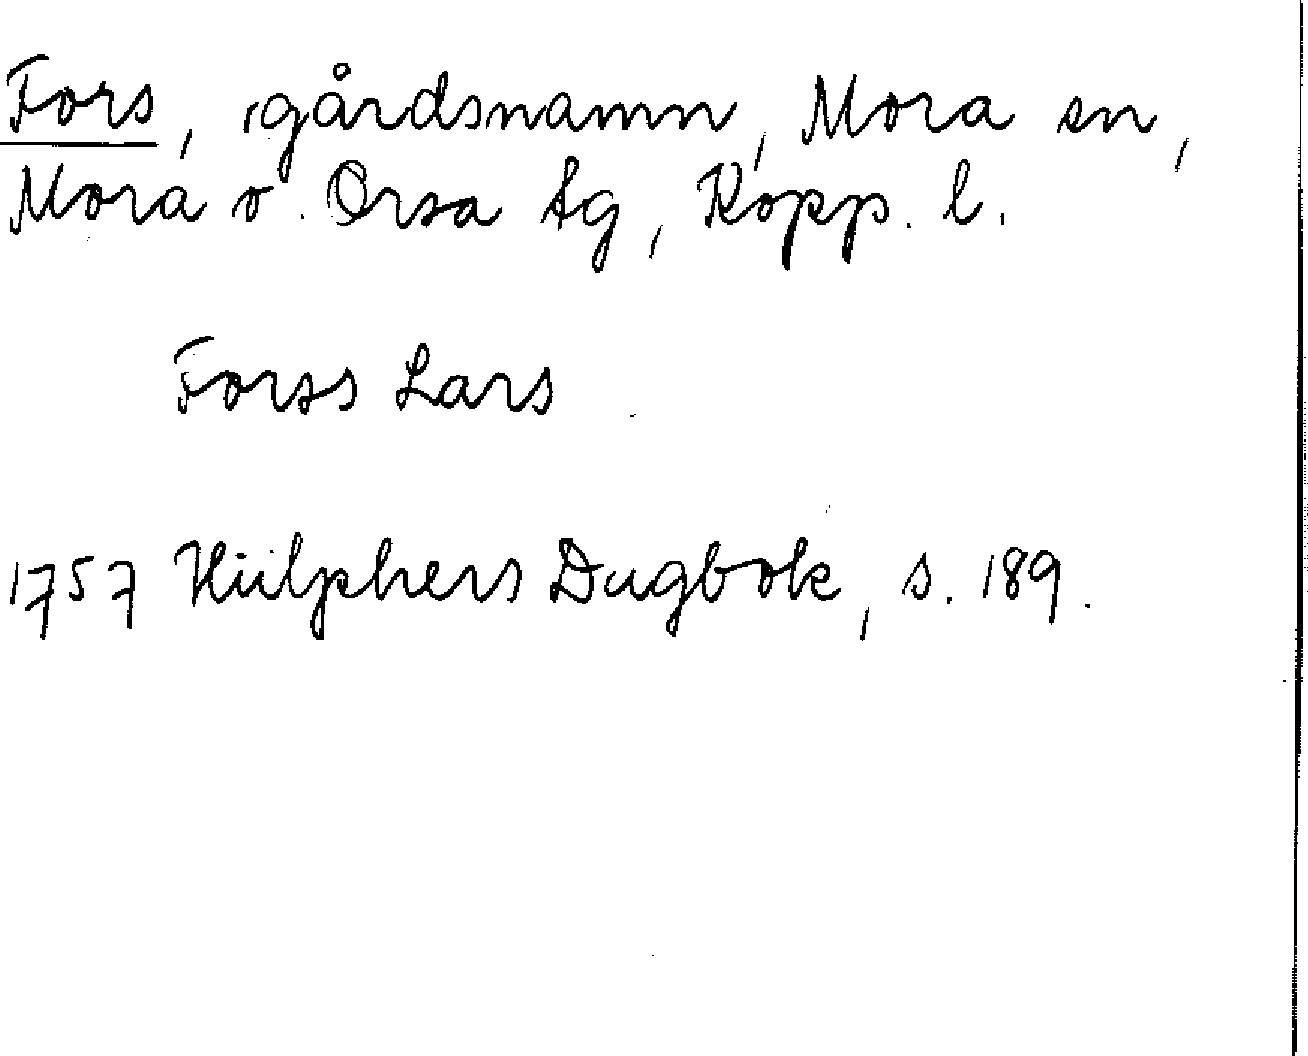 Fors, gårdsnamn, Mora sn,
Mora o. Orsa tg, Kopp. l.
Forss Lars
1757 Hülphers Dagbok, s. 189.